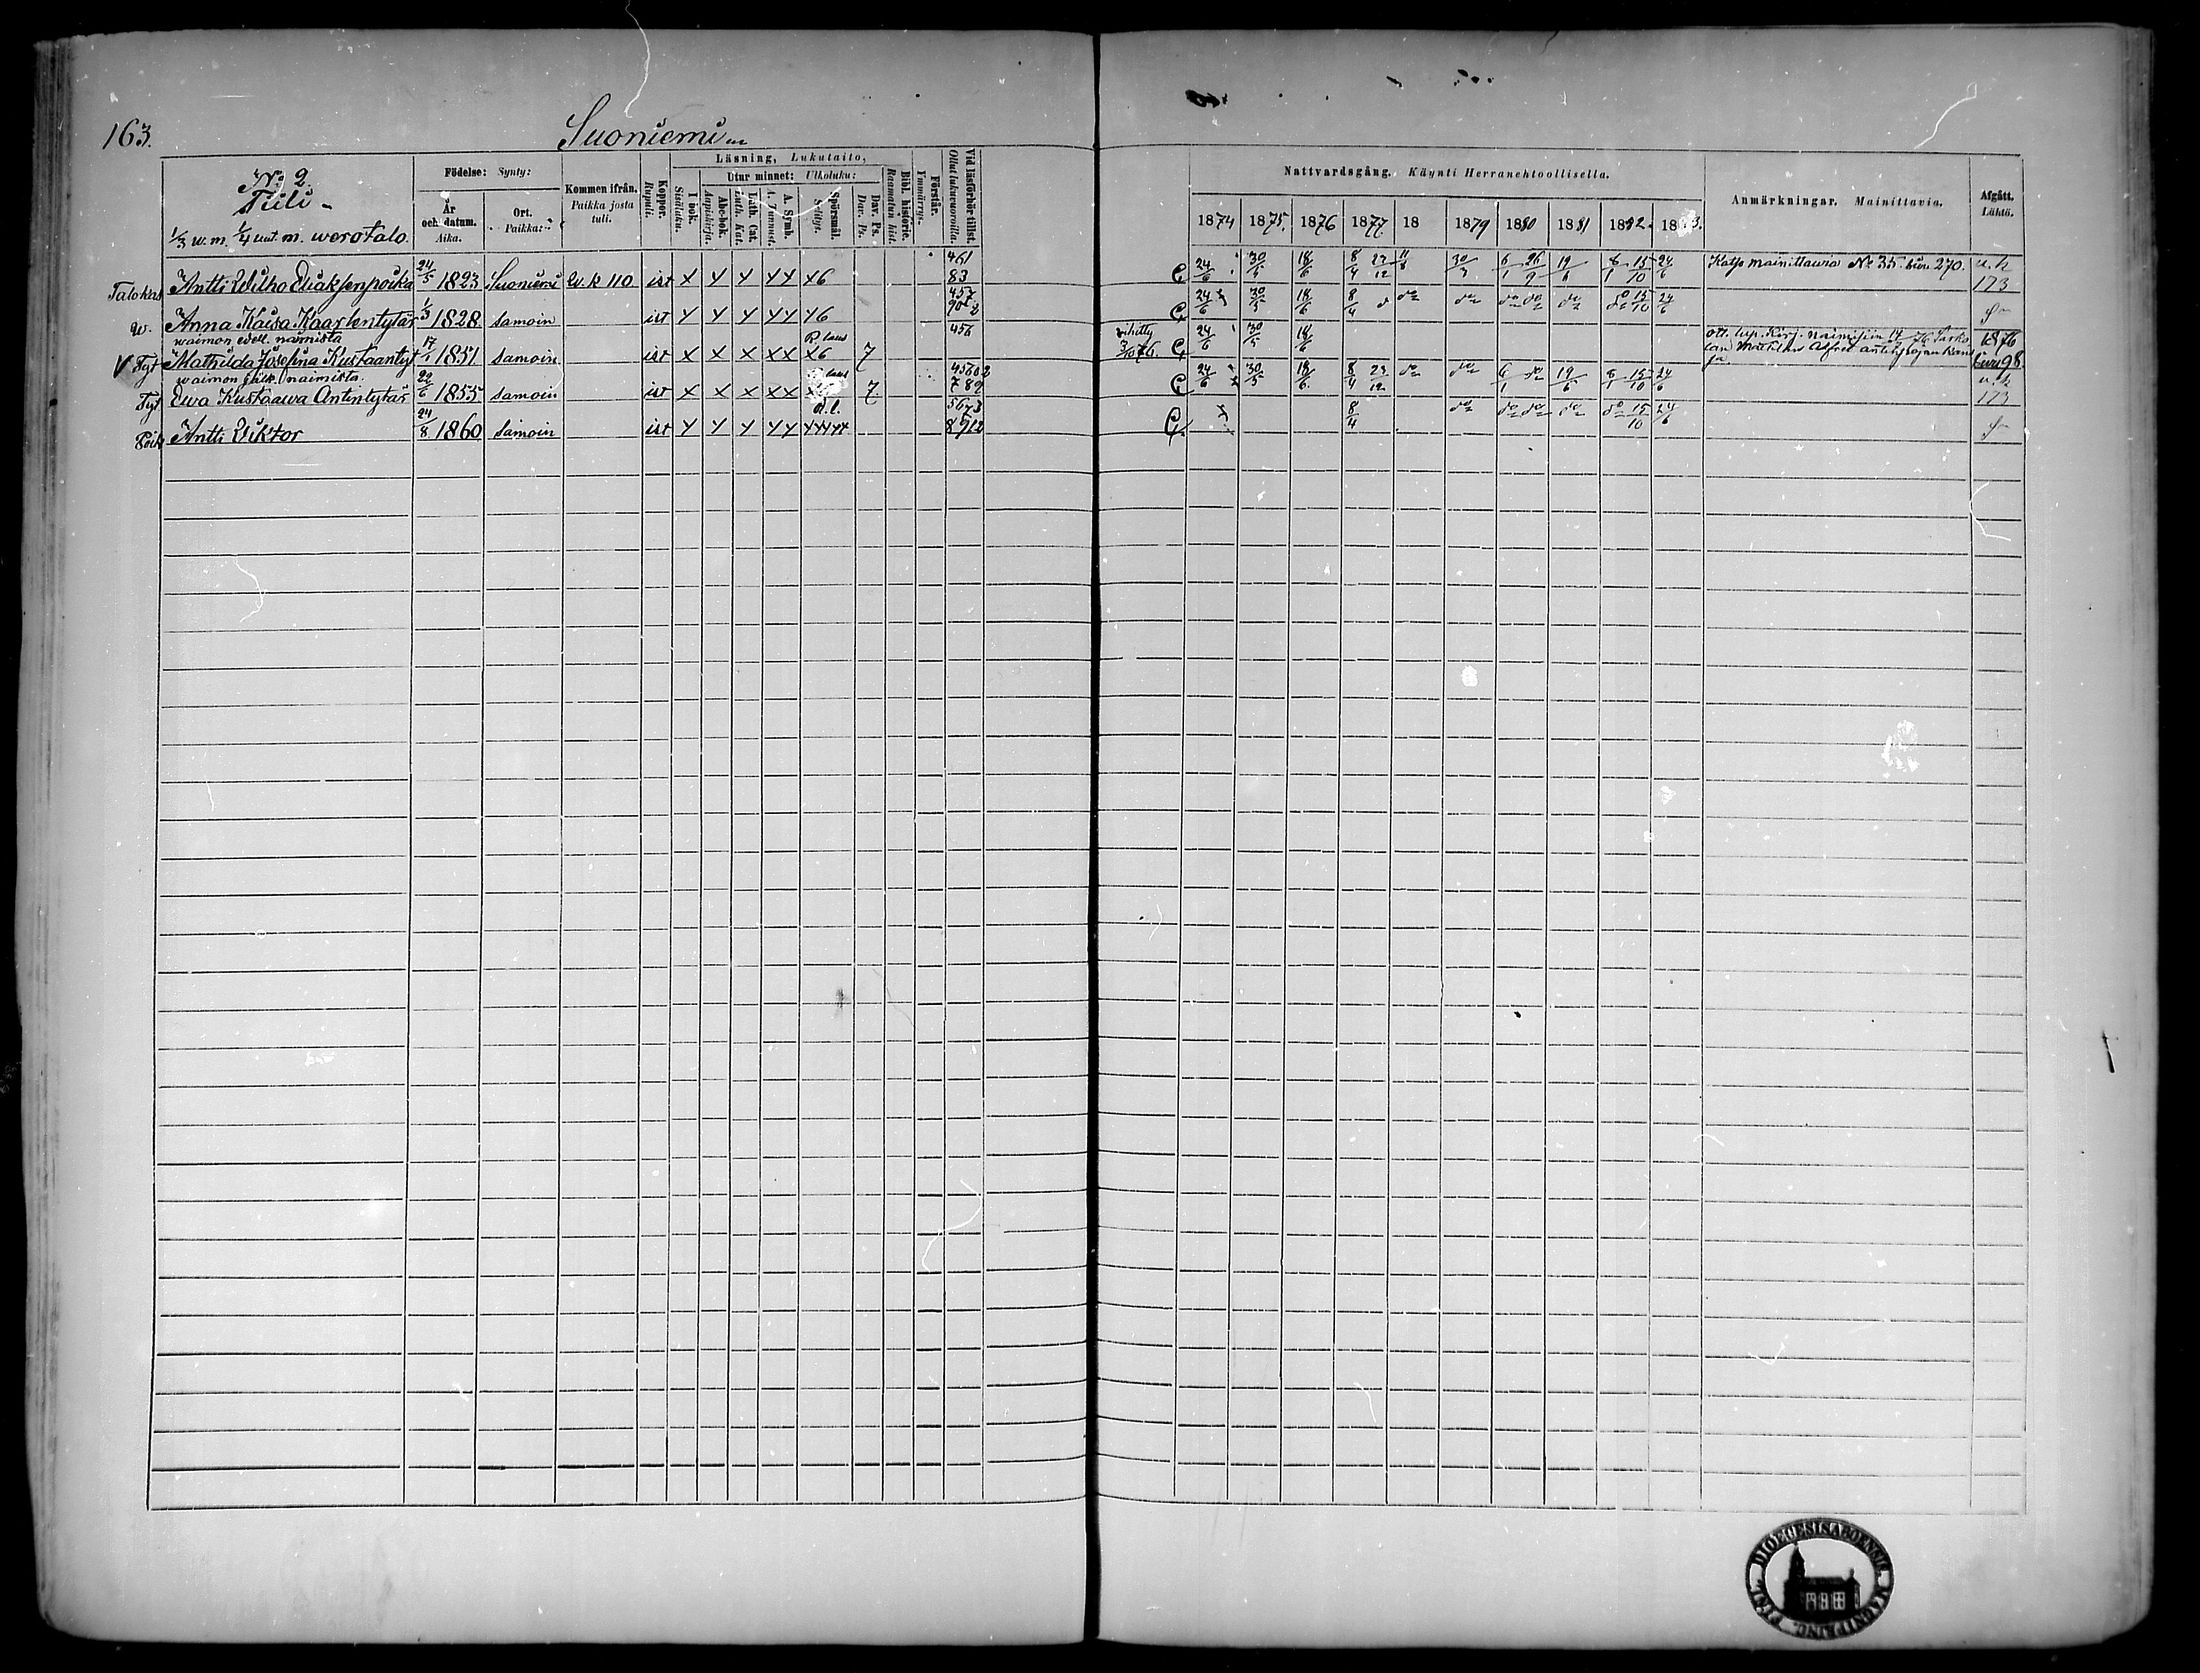 163.
Suoniemi
No 2
Tiili
1/3 w. m. 1/4 uut. m. werotalo.
Födelse: Synty:
År och datum. Aika.
Ort. Paikka:
Kommen ifrån. Paikka josta tuli.
Koppor. Rupuli.
Läsning, Lukutaito,
I bok. Sisäluku.
Utur minnet: Ulkoluku:
Abc-bok. Aapiskirja.
Luth. Cat. Luth. Kat.
A. Symb. A. Tunnust.
Spörsmål. Selitys.
Dav. Ps. Dav. Ps.
Bibl. historie. Raamatun hist.
Förstår. Ymmärrys.
Vid läsförhör tillst. Ollut lukuvuorolla.
Nattvardsgång. Käynti Herranehtoollisella.
1874 1875. 1876 1877. 18 1879 1880 1881 1882. 1883.
Anmärkningar. Mainittavia.
Afgått. Lähtö.
461
Talokas Antti Wilho Eliaksenpoika 24/5 1823 Suoniemi W. k 110 ist x y y yy x6 83 C 24/6 30/5 18/6 8/4 23/12 11/8 30/3 6/1 26/9 19/6 8/1 15/10 24/6 Katso mainittawia No 35 siwu 270. u. k 173
457
w. Anna Kaisa Kaarlentytär 1/3 1828 samoin ist y y y yy y6 C 24/6 30/5 18/6 8/4 do do do do do do do 15/10 24/6
waimon edell. naimista
Tyt Mathilda Josefina Kustaantyt 17/1 1851 samoin ist x x x xx x6 7 456 wihitty C 24/6 30/5 18/6 1876 siwu 98
waimon naimista.
Tyt Ewa Kustaawa Antintytär 1855 samoin ist x x x xx 7. 789 C 24/6 30/5 18/6 8/4 23/12 do do 6/1 do 19/6 8/1 15/10 24/6 u. k 173
5673
Poik Antti Wiktor 24/8 1860 samoin ist y y y yy 8912 C 8/4 do do do do do 15/10 24/6
SIGILL. DIOECESIS ABOENSIS. MAGNI PRINC. FINL.